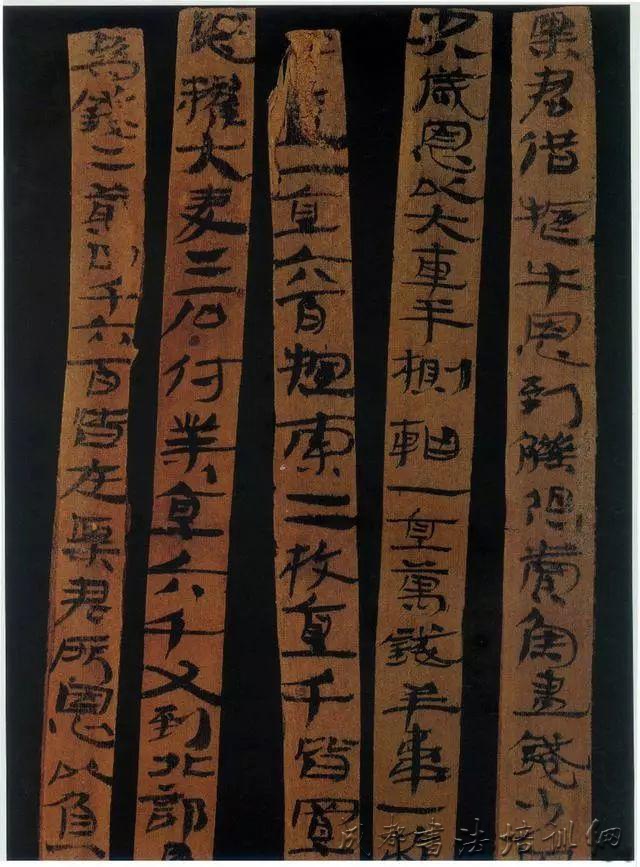 粟君借犅牛恩到觻得賣魚盡錢少
八歲恩以大車半㯙軸一直萬錢羊韋一
一直六百犢索二枚直千皆置
恩糴大麥二石付業直六千又到北部
為錢二萬四千六百皆在粟君所恩以負
成都書法培训网